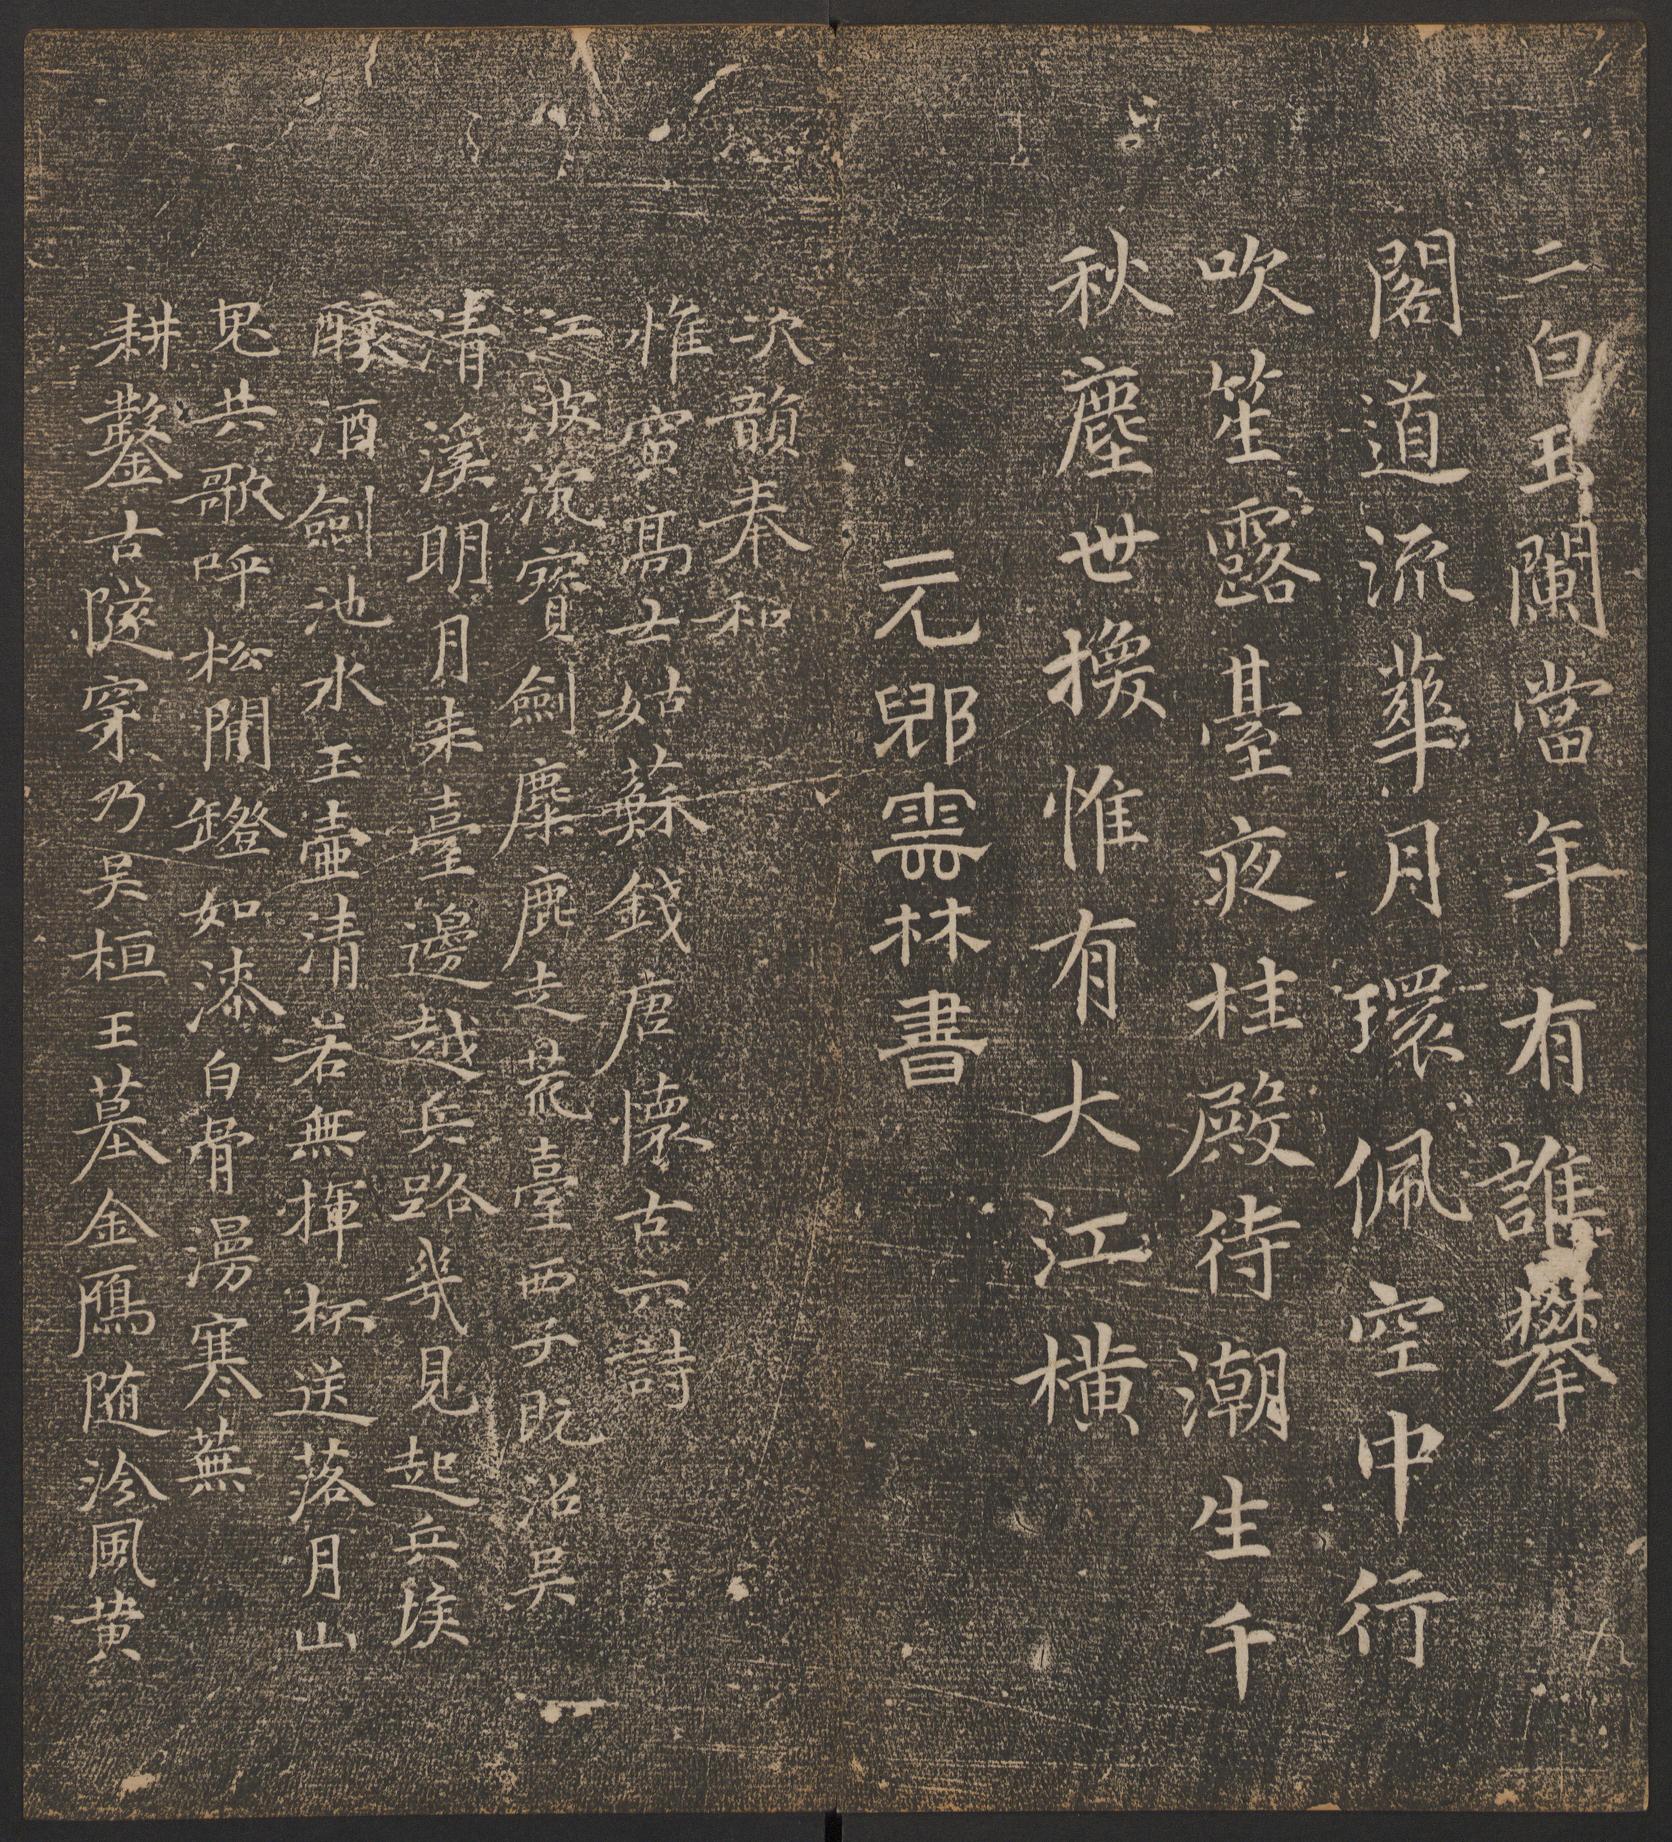 二白玉闌當年有誰攀
閣道流華月環佩空中行
吹笙露臺夜桂殿待潮生千
秋塵世換惟有大江橫
元鄉雲林書
次韻奉和
惟寅高士姑蘇錢唐懷古六詩
江波沉寶劍麋鹿走荒臺西子既沼吳
清溪明月来臺邊越兵路幾見起兵埃
釀酒劍池水玉壷清若無揮杯送落月山
鬼共歌呼松間鐙如漆白骨漫寒蕪
耕鑿古隧穿乃吳桓王墓金鴈随泠風黄